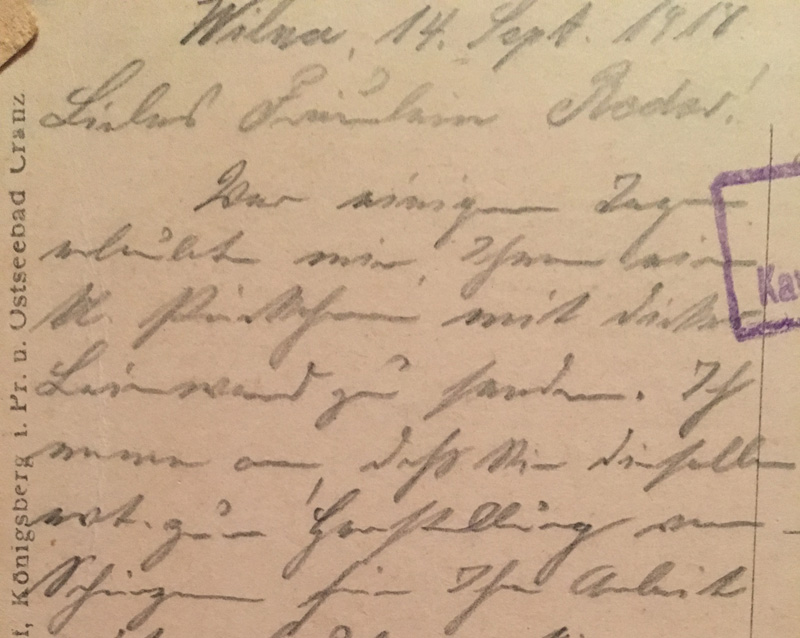 Wilna, 14. Sept. 1918
Liebes Fräulein Roder!
Vor einigen Tagen
erlaubte mir, Ihnen ein
kl. Päckchen mit dicker
Leinwand zu senden. Ich
nehme an, daß Sie dieselbe
evt. zur Herstellung von
Schürzen für Ihre Arbeit
f, Königsberg i. Pr. u. Ostseebad Cranz